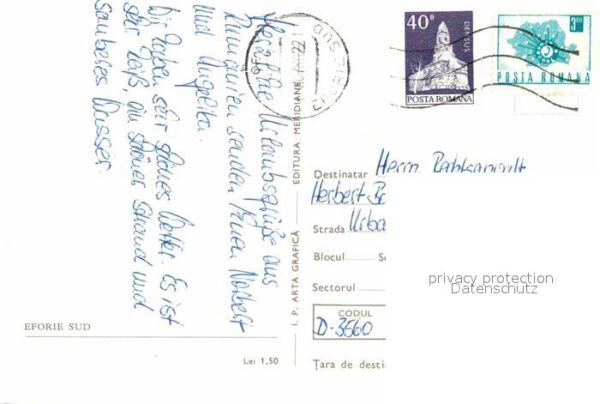 Herzliche Urlaubsgrüße aus
Rumänien senden Ihnen Norbert
und Angelika.
Wir haben sehr schönes Wetter. Es ist
sehr heiß, ein schöner Strand und
sauberes Wasser
EFORIE SUD
Lei 1,50
I. P. ARTA GRAFICĂ
EDITURA MERIDIANE
EFORIE SUD
40 B
DENSUȘ
POSTA ROMANA
3 LEI
POSTA ROMANA
Destinatar Herrn Rechtsanwalt
Herbert
Strada Urba
Blocul
Sectorul
CODUL
D-3560
Țara de desti
privacy protection
Datenschutz